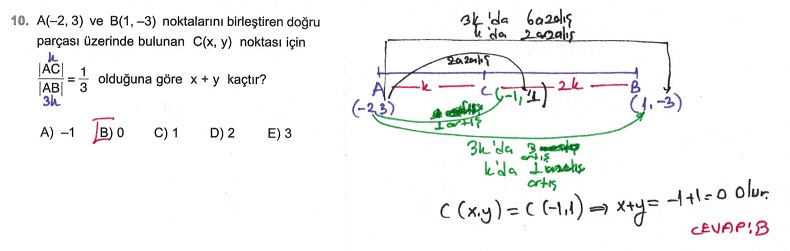 10. A(–2, 3) ve B(1, –3) noktalarını birleştiren doğru
parçası üzerinde bulunan C(x, y) noktası için
k
|AC| / |AB| = 1/3 olduğuna göre x + y kaçtır?
3k
A) –1 B) 0 C) 1 D) 2 E) 3
3k'da 6azalış
k'da 2azalış
2azalış
A k C 2k B
(-2,3) (-1, 1) (1,-3)
1artış
3k'da 3
artış
k'da 1
artış
C(x,y) = C(-1,1) ⇒ x+y = -1+1=0 olur.
CEVAP:B